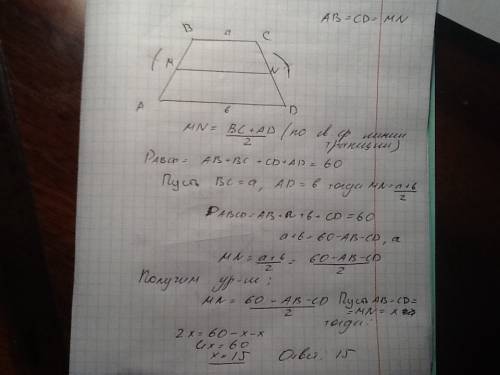 AB = CD = MN
B a C
M N
A b D
MN = BC + AD / 2 (по св. ср. линии
трапеции)
P ABCD = AB + BC + CD + AD = 60
Пусть BC = a, AD = b тогда MN = a + b / 2
P ABCD = AB + a + b + CD = 60
a + b = 60 - AB - CD, a
MN = a + b / 2 = 60 - AB - CD / 2
Получим ур-ие:
MN = 60 - AB - CD / 2 Пусть AB = CD =
= MN = x
тогда:
2x = 60 - x - x
4x = 60
x = 15 Ответ: 15